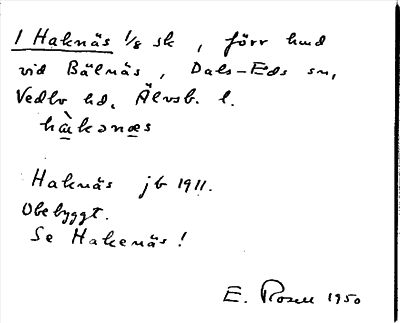 1 Haknäs 1/8 sk, förr hmd
vid Bälnäs, Dals-Eds sn,
Vedbo hd. Älvsb. l.
hàkənæs
Haknäs jb 1911.
Obebyggt.
Se Hakenäs!
E. Rosell 1950